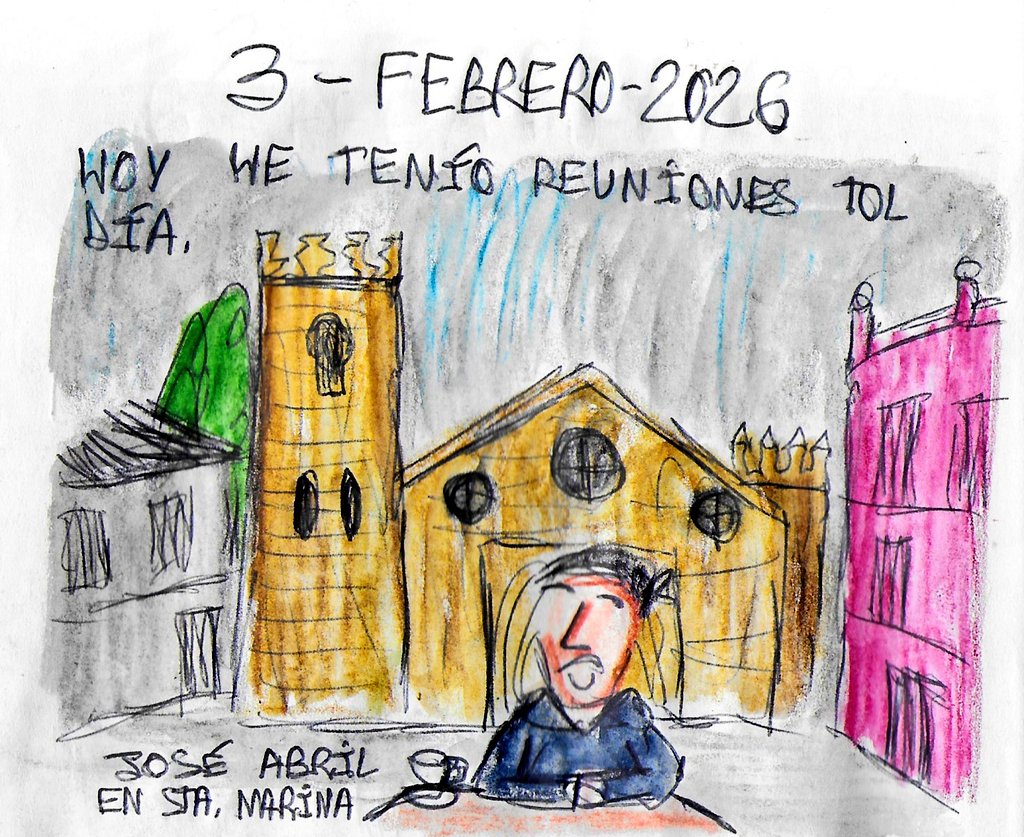 3 - FEBRERO-2026
HOY HE TENÍO REUNIONES TOL
DÍA.
JOSÉ ABRIL
EN STA. MARINA